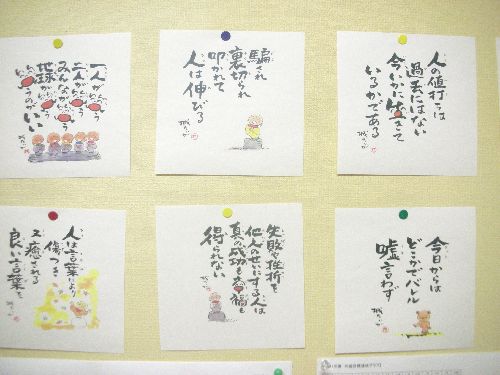 人の値打ちは
過去にはない
今いかに生きて
いるかである
騙され
裏切られ
叩かれて
人は伸びる
一人が
二人が
みんなが
地球が
いい
今日からは
どこかでバレル
嘘言わず
失敗や挫折を
他人のせいにする人は
真の成功も幸福も
得られない
人は言葉により
傷つき
又癒される
良い言葉を